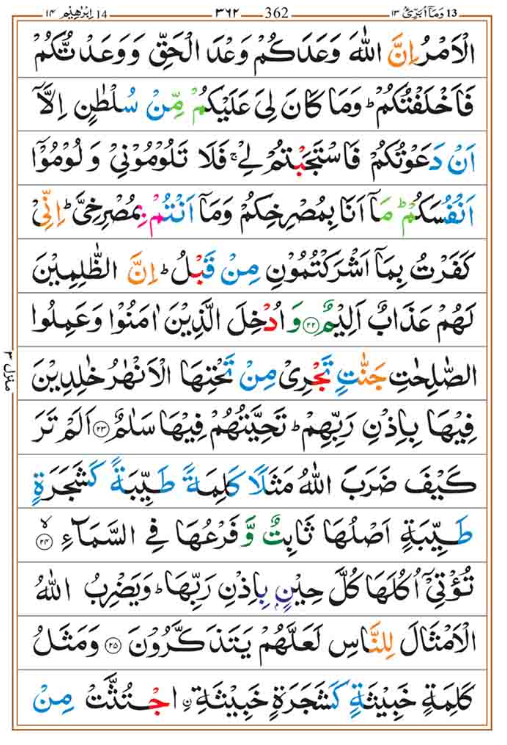 13 وَمَاۤ اُبَرِّئُ ١٣ 362 ٣٦٢ 14 اِبْرٰهِيْم ١٤
الْاَمْرُ اِنَّ اللّٰهَ وَعَدَكُمْ وَعْدَ الْحَقِّ وَوَعَدْتُّكُمْ
فَاَخْلَفْتُكُمْ ؕ وَمَا كَانَ لِیَ عَلَيْكُمْ مِّنْ سُلْطٰنٍ اِلَّاۤ
اَنْ دَعَوْتُكُمْ فَاسْتَجَبْتُمْ لِیْ ۚ فَلَا تَلُوْمُوْنِیْ وَ لُوْمُوْۤا
اَنْفُسَكُمْ ؕ مَاۤ اَنَا بِمُصْرِخِكُمْ وَمَاۤ اَنْتُمْ بِمُصْرِخِیَّ ؕ اِنِّیْ
كَفَرْتُ بِمَاۤ اَشْرَكْتُمُوْنِ مِنْ قَبْلُ ؕ اِنَّ الظّٰلِمِيْنَ
لَهُمْ عَذَابٌ اَلِيْمٌ ۝۲۲ وَ اُدْخِلَ الَّذِيْنَ اٰمَنُوْا وَعَمِلُوا
الصّٰلِحٰتِ جَنّٰتٍ تَجْرِیْ مِنْ تَحْتِهَا الْاَنْهٰرُ خٰلِدِيْنَ
فِيْهَا بِاِذْنِ رَبِّهِمْ ؕ تَحِيَّتُهُمْ فِيْهَا سَلٰمٌ ۝۲۳ اَلَمْ تَرَ
كَيْفَ ضَرَبَ اللّٰهُ مَثَلًا كَلِمَةً طَيِّبَةً كَشَجَرَةٍ
طَيِّبَةٍ اَصْلُهَا ثَابِتٌ وَّ فَرْعُهَا فِی السَّمَآءِ ۝۲۴ۙ
تُؤْتِیْۤ اُكُلَهَا كُلَّ حِيْنٍۭ بِاِذْنِ رَبِّهَا ؕ وَيَضْرِبُ اللّٰهُ
الْاَمْثَالَ لِلنَّاسِ لَعَلَّهُمْ يَتَذَكَّرُوْنَ ۝۲۵ وَمَثَلُ
كَلِمَةٍ خَبِيْثَةٍ كَشَجَرَةٍ خَبِيْثَةِ ۟اجْتُثَّتْ مِنْ
منزل ٣